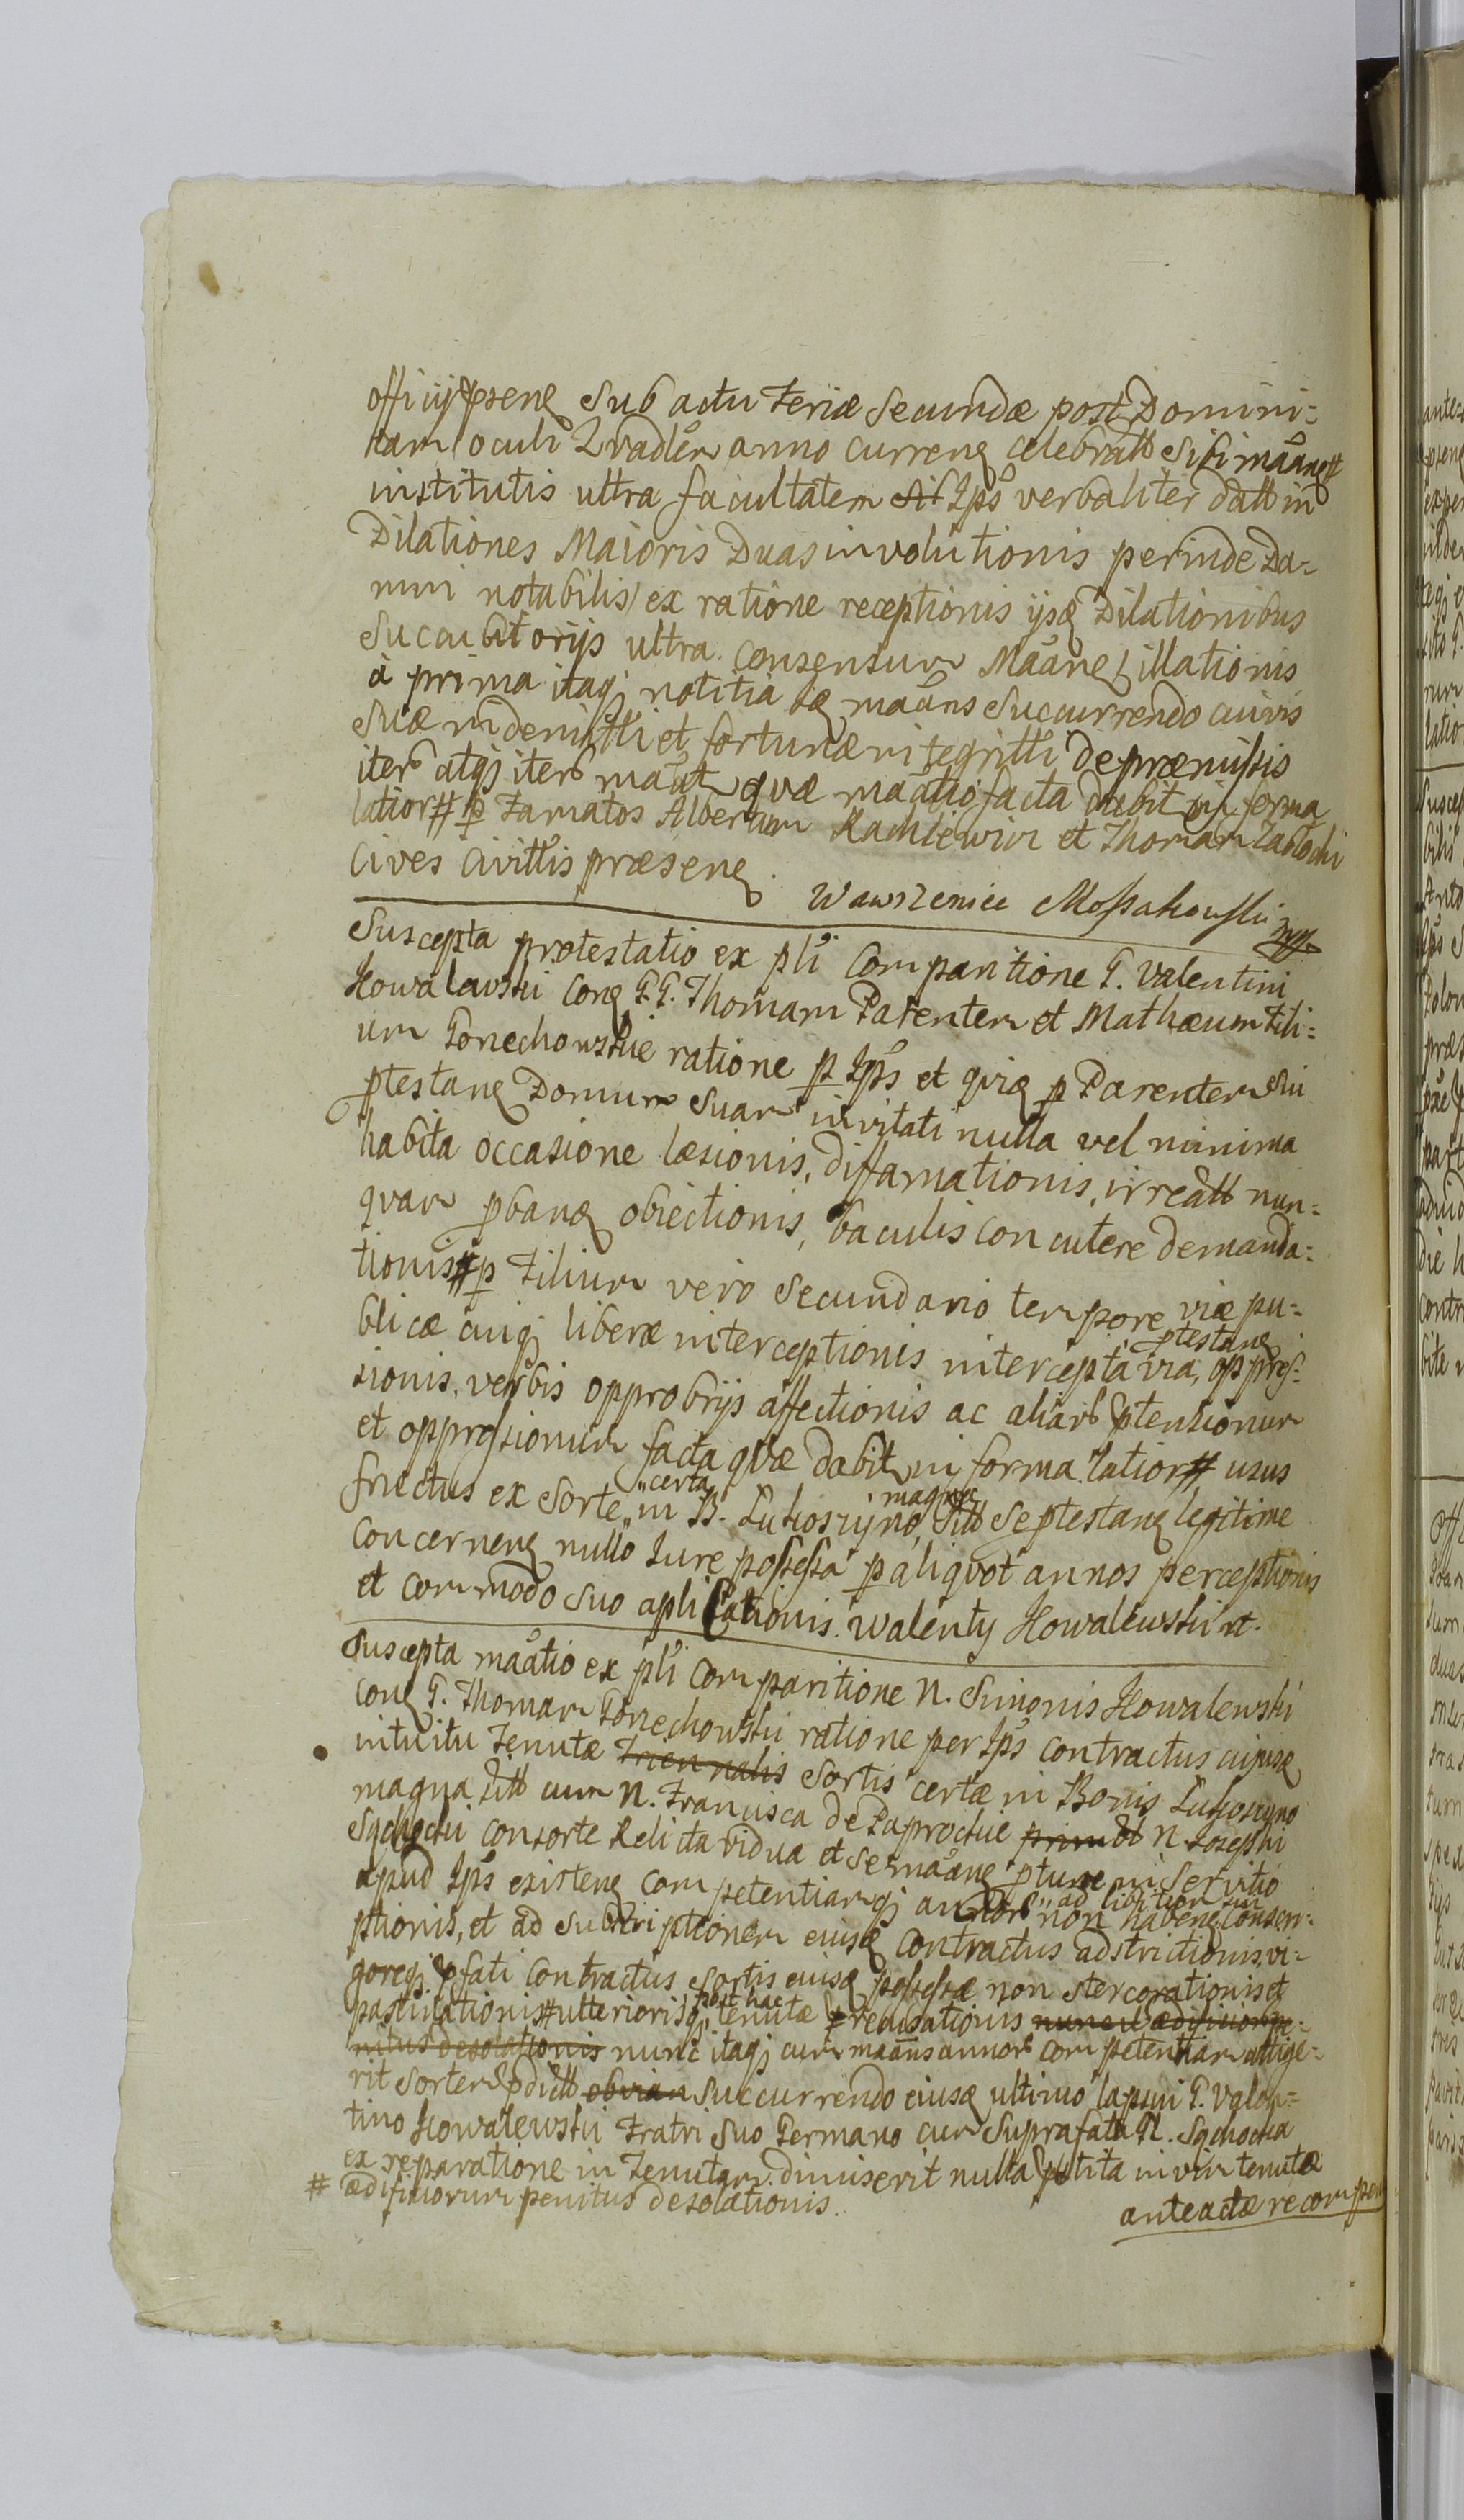 officij psenę Sub actu Feriæ Secundæ post Domini-
cam Oculi Qvadler anno currenę celebratt Sibi mãanę
institutis ultra facultatem Sib Ips verbaliter datt in
Dilationes Maioris Duas involutionis perinde Da-
mni notabilis ex ratione receptionis ijsdę Dilationibus
Succubitorijs ultra consensum Mãanę illationis
à prima itaqj notitia eę maãns Succurrendo cuivis
Suæ indemnitti et fortunæ integritti de præmissis
iterb atqj iterb maãt qvæ maãtio facta dabit in forma
latior # p Famatos Albertum Rachlewicz et Thomam Zabłocki
Cives Civittis præsenę.
Wawrzeniec Mossakowski mp
Suscepta protestatio ex pli Comparitione G. Valentini
Kowalewski Conę G.G. Thomam Patrentem et Mathæum Fili-
um Gonechowskie ratione p Ips et qvię p Parentem in
ptestanę Domum Suam invitati nulla vel minima
habita occasione læsionis, diffamationis, irreatt nun-
qvam pbanę obiectionis, baculis concutere demanda-
tionis # p Filium vero Secundario tempore viæ pu-
blicæ cuiqj liberæ interceptionis intercepta via, ptestanę oppres-
sionis, verbis opprobrijs affectionis ac aliarb ptensionum
et oppressionum facta qvæ dabit in forma latior # usus
fructus ex Sorte "certa in B. Lutoszyno magna Sitt Se ptestanę legitime
concernenę nullo Iure possessa p aliqvot annos perceptionis
et commodo Suo aplicationis. Walenty Kowalewski
Suscepta maãtio ex pli Comparitione N. Simonis Kowalewski
conę G. Thomam Gonechowski ratione per Ips contractus cujusę
intuitu Tenutæ Triennalis Sortis certæ in Bonis Lutoszyno
magna Sitt cum N. Francisca de Paprockie N. Iosephi
consorte Relicta vidua et Se maãnę ptunc in Servitio
apud Ips existenę competentiamqj annorb "ad libitum sui non habenę Conscri-
ptionis, et ad Subscriptionem eiusę contractus adstrictionis, vi-
goreqj pfati Contractus Sortis eiusę possessæ non stercorationis et
pastinationis # ulteriorisqj post hac tenutæ recusationis nunc ædificior pe-
nitus desolationis nunc itaqj cum maãns annorb competentiam attige-
rit Sortem pditt obviam Succurrendo eiusę ultimo lapsui G. Valen-
tino Kowalewski Fratri Suo Germano cum Suprafata N.
ex reparatione in Tenutam dimiserit nulla petita in vim tenutæ
# ædificiorum penitus desolationis.
anteactæ recompen